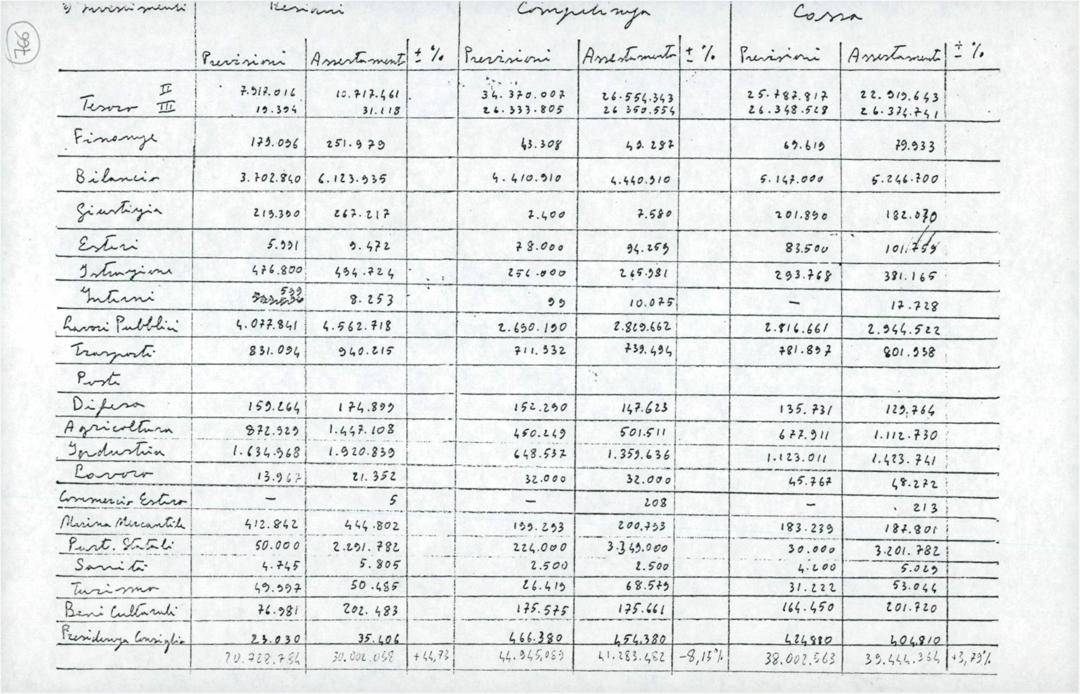 766
Investimenti Residui Competenza Cassa
Previsioni Assestamenti ± % Previsioni Assestamento ± % Previsioni Assestamenti ± %
Tesoro II 7.917.016 10.717.461 34.370.007 26.554.343 25.787.817 22.919.643
III 19.394 31.118 26.333.805 26 350.554 26.348.528 26.374.741
Finanze 179.096 251.979 43.308 49.287 69.619 79.933
Bilancio 3.702.840 6.123.935 4.410.910 4.440.910 5.147.000 5.246.700
Giustizia 219.390 267.217 7.400 7.580 201.890 182.070
Esteri 5.991 9.472 78.000 94.259 83.500 101.759
Istruzione 476.800 494.724 256.000 265.981 293.768 381.165
Interni 599 8.253 99 10.075 — 17.728
Lavori Pubblici 4.077.841 4.562.718 2.690.190 2.829.662 2.816.661 2.944.522
Trasporti 831.094 940.215 711.932 739.494 781.897 801.958
Poste
Difesa 159.264 174.899 152.290 147.623 135.731 129.764
Agricoltura 872.929 1.447.108 450.249 501.511 677.911 1.112.730
Industria 1.634.968 1.920.839 648.537 1.359.636 1.123.011 1.423.741
Lavoro 13.967 21.352 32.000 32.000 45.767 48.272
Commercio Estero — 5 — 208 — 213
Marina Mercantile 412.842 444.802 199.293 200.793 183.239 187.801
Part. Statali 50.000 2.291.782 224.000 3.349.000 30.000 3.201.782
Sanità 4.745 5.805 2.500 2.500 4.200 5.029
Turismo 49.997 50.485 26.419 68.579 31.222 53.044
Beni Culturali 76.981 202.483 175.575 175.661 164.450 201.720
Presidenza Consiglio 23.030 35.406 466.380 454.380 424880 404810
20.728.754 30.002.058 +44,73 44.945.089 41.283.482 -8,15% 38.002.563 39.444.364 +3,79%